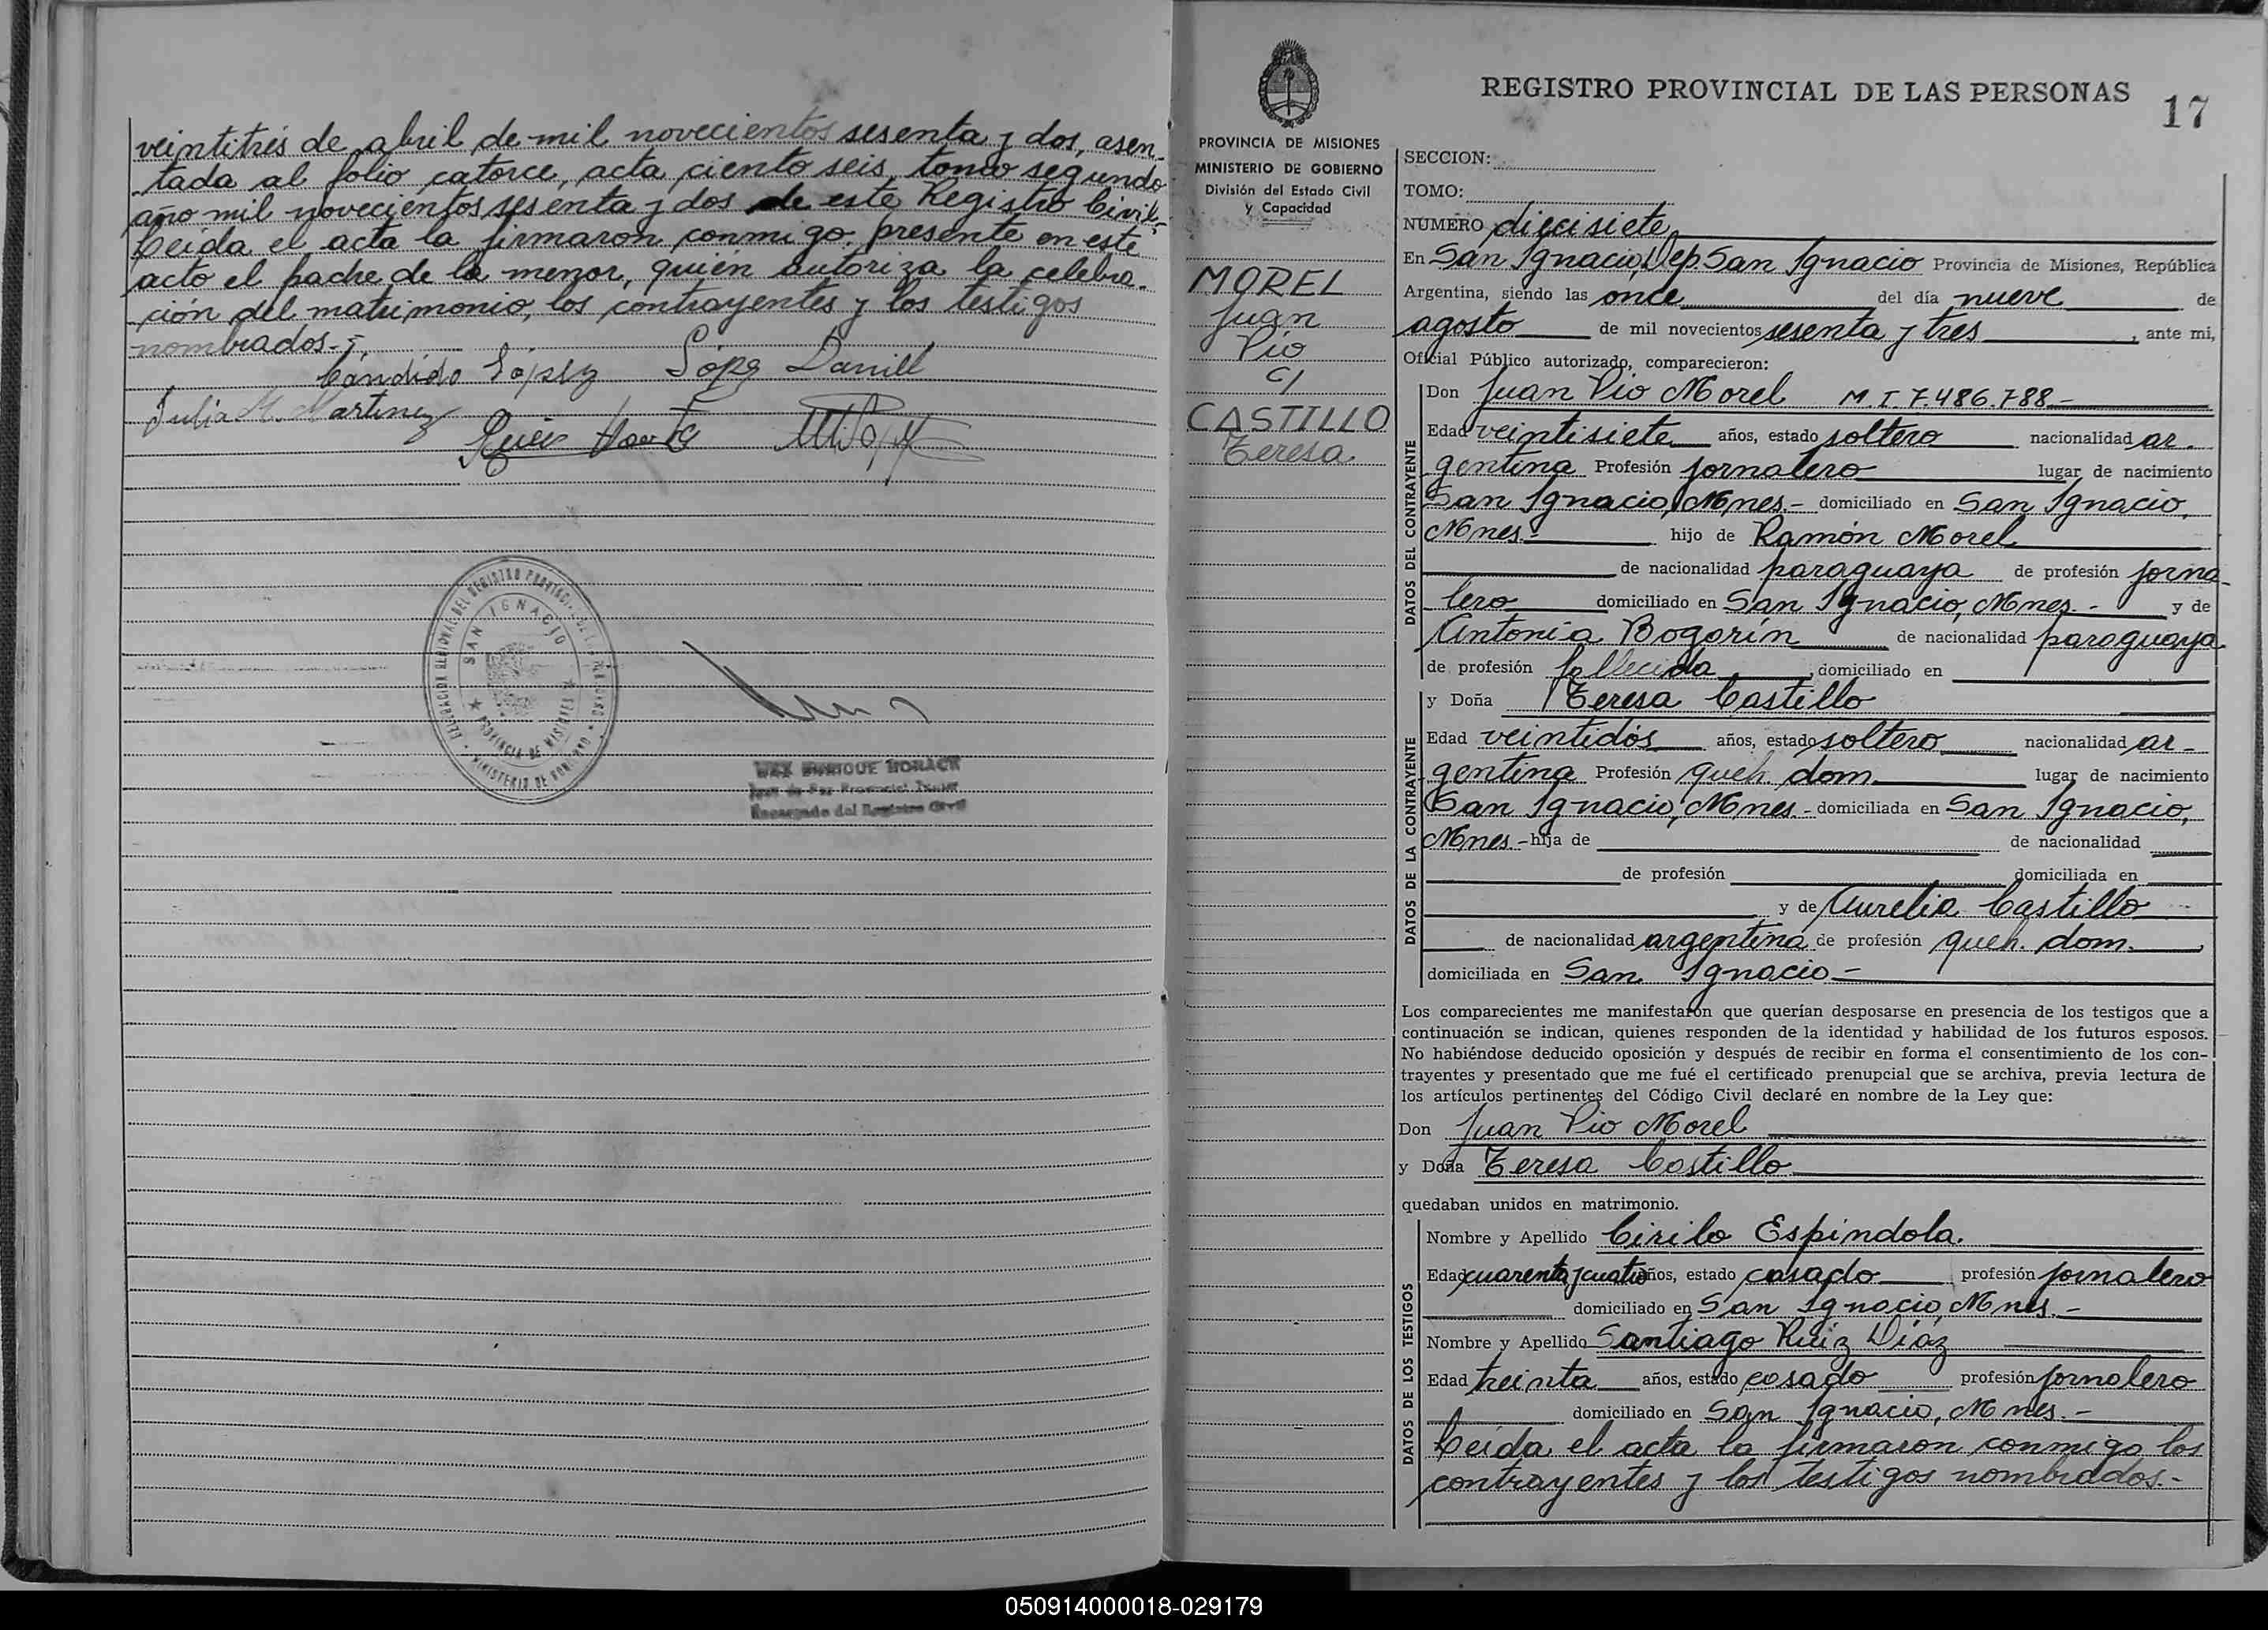 veintitrés de abril de mil novecientos sesenta y dos, asen-
tada al folio catorce, acta ciento seis, tomo segundo
año mil novecientos sesenta y dos de este Registro Civil.-
Leída el acta la firmaron conmigo, presente en este
acto el padre de la menor, quién autoriza la celebra-
ción del matrimonio, los contrayentes y los testigos
nombrados.-
Candido López López Daniel
Julia M. Martinez
DELEGACION REGIONAL DEL REGISTRO PROVINCIAL DE LAS PERSONAS
SAN IGNACIO
PROVINCIA DE MISIONES
MINISTERIO DE GOBIERNO
ENRIQUE HORACK
Juez de Paz Provincial Titular
Encargado del Registro Civil
REGISTRO PROVINCIAL DE LAS PERSONAS
17
PROVINCIA DE MISIONES
MINISTERIO DE GOBIERNO
División del Estado Civil
y Capacidad
MOREL
Juan
Pío
c/
CASTILLO
Teresa
SECCION:
TOMO:
NUMERO diecisiete
En San Ignacio, Dep. San Ignacio Provincia de Misiones, República
Argentina, siendo las once del día nueve de
agosto de mil novecientos sesenta y tres, ante mi,
Oficial Público autorizado, comparecieron:
DATOS DEL CONTRAYENTE
Don Juan Pio Morel M.I. 7.486.788.-
Edad veintisiete años, estado soltero nacionalidad ar-
gentina Profesión jornalero lugar de nacimiento
San Ignacio, Mnes.- domiciliado en San Ignacio,
Mnes.- hijo de Ramón Morel
de nacionalidad paraguaya de profesión jorna-
lero domiciliado en San Ignacio, Mnes.- y de
Antonia Bogarín de nacionalidad paraguaya
de profesión fallecida, domiciliado en
DATOS DE LA CONTRAYENTE
y Doña Teresa Castillo
Edad veintidós años, estado soltero nacionalidad ar-
gentina Profesión queh. dom. lugar de nacimiento
San Ignacio, Mnes.- domiciliada en San Ignacio,
Mnes.- hija de de nacionalidad
de profesión domiciliada en
y de Aurelia Castillo
de nacionalidad argentina de profesión queh. dom.,
domiciliada en San Ignacio.-
Los comparecientes me manifestaron que querían desposarse en presencia de los testigos que a
continuación se indican, quienes responden de la identidad y habilidad de los futuros esposos.
No habiéndose deducido oposición y después de recibir en forma el consentimiento de los con-
trayentes y presentado que me fué el certificado prenupcial que se archiva, previa lectura de
los artículos pertinentes del Código Civil declaré en nombre de la Ley que:
Don Juan Pio Morel
y Doña Teresa Castillo
quedaban unidos en matrimonio.
DATOS DE LOS TESTIGOS
Nombre y Apellido Cirilo Espíndola.
Edad cuarenta y cuatro años, estado casado profesión jornalero
domiciliado en San Ignacio, Mnes.-
Nombre y Apellido Santiago Ruiz Díaz
Edad treinta años, estado casado profesión jornalero
domiciliado en San Ignacio, Mnes.-
Leída el acta la firmaron conmigo los
contrayentes y los testigos nombrados.-
050914000018-029179